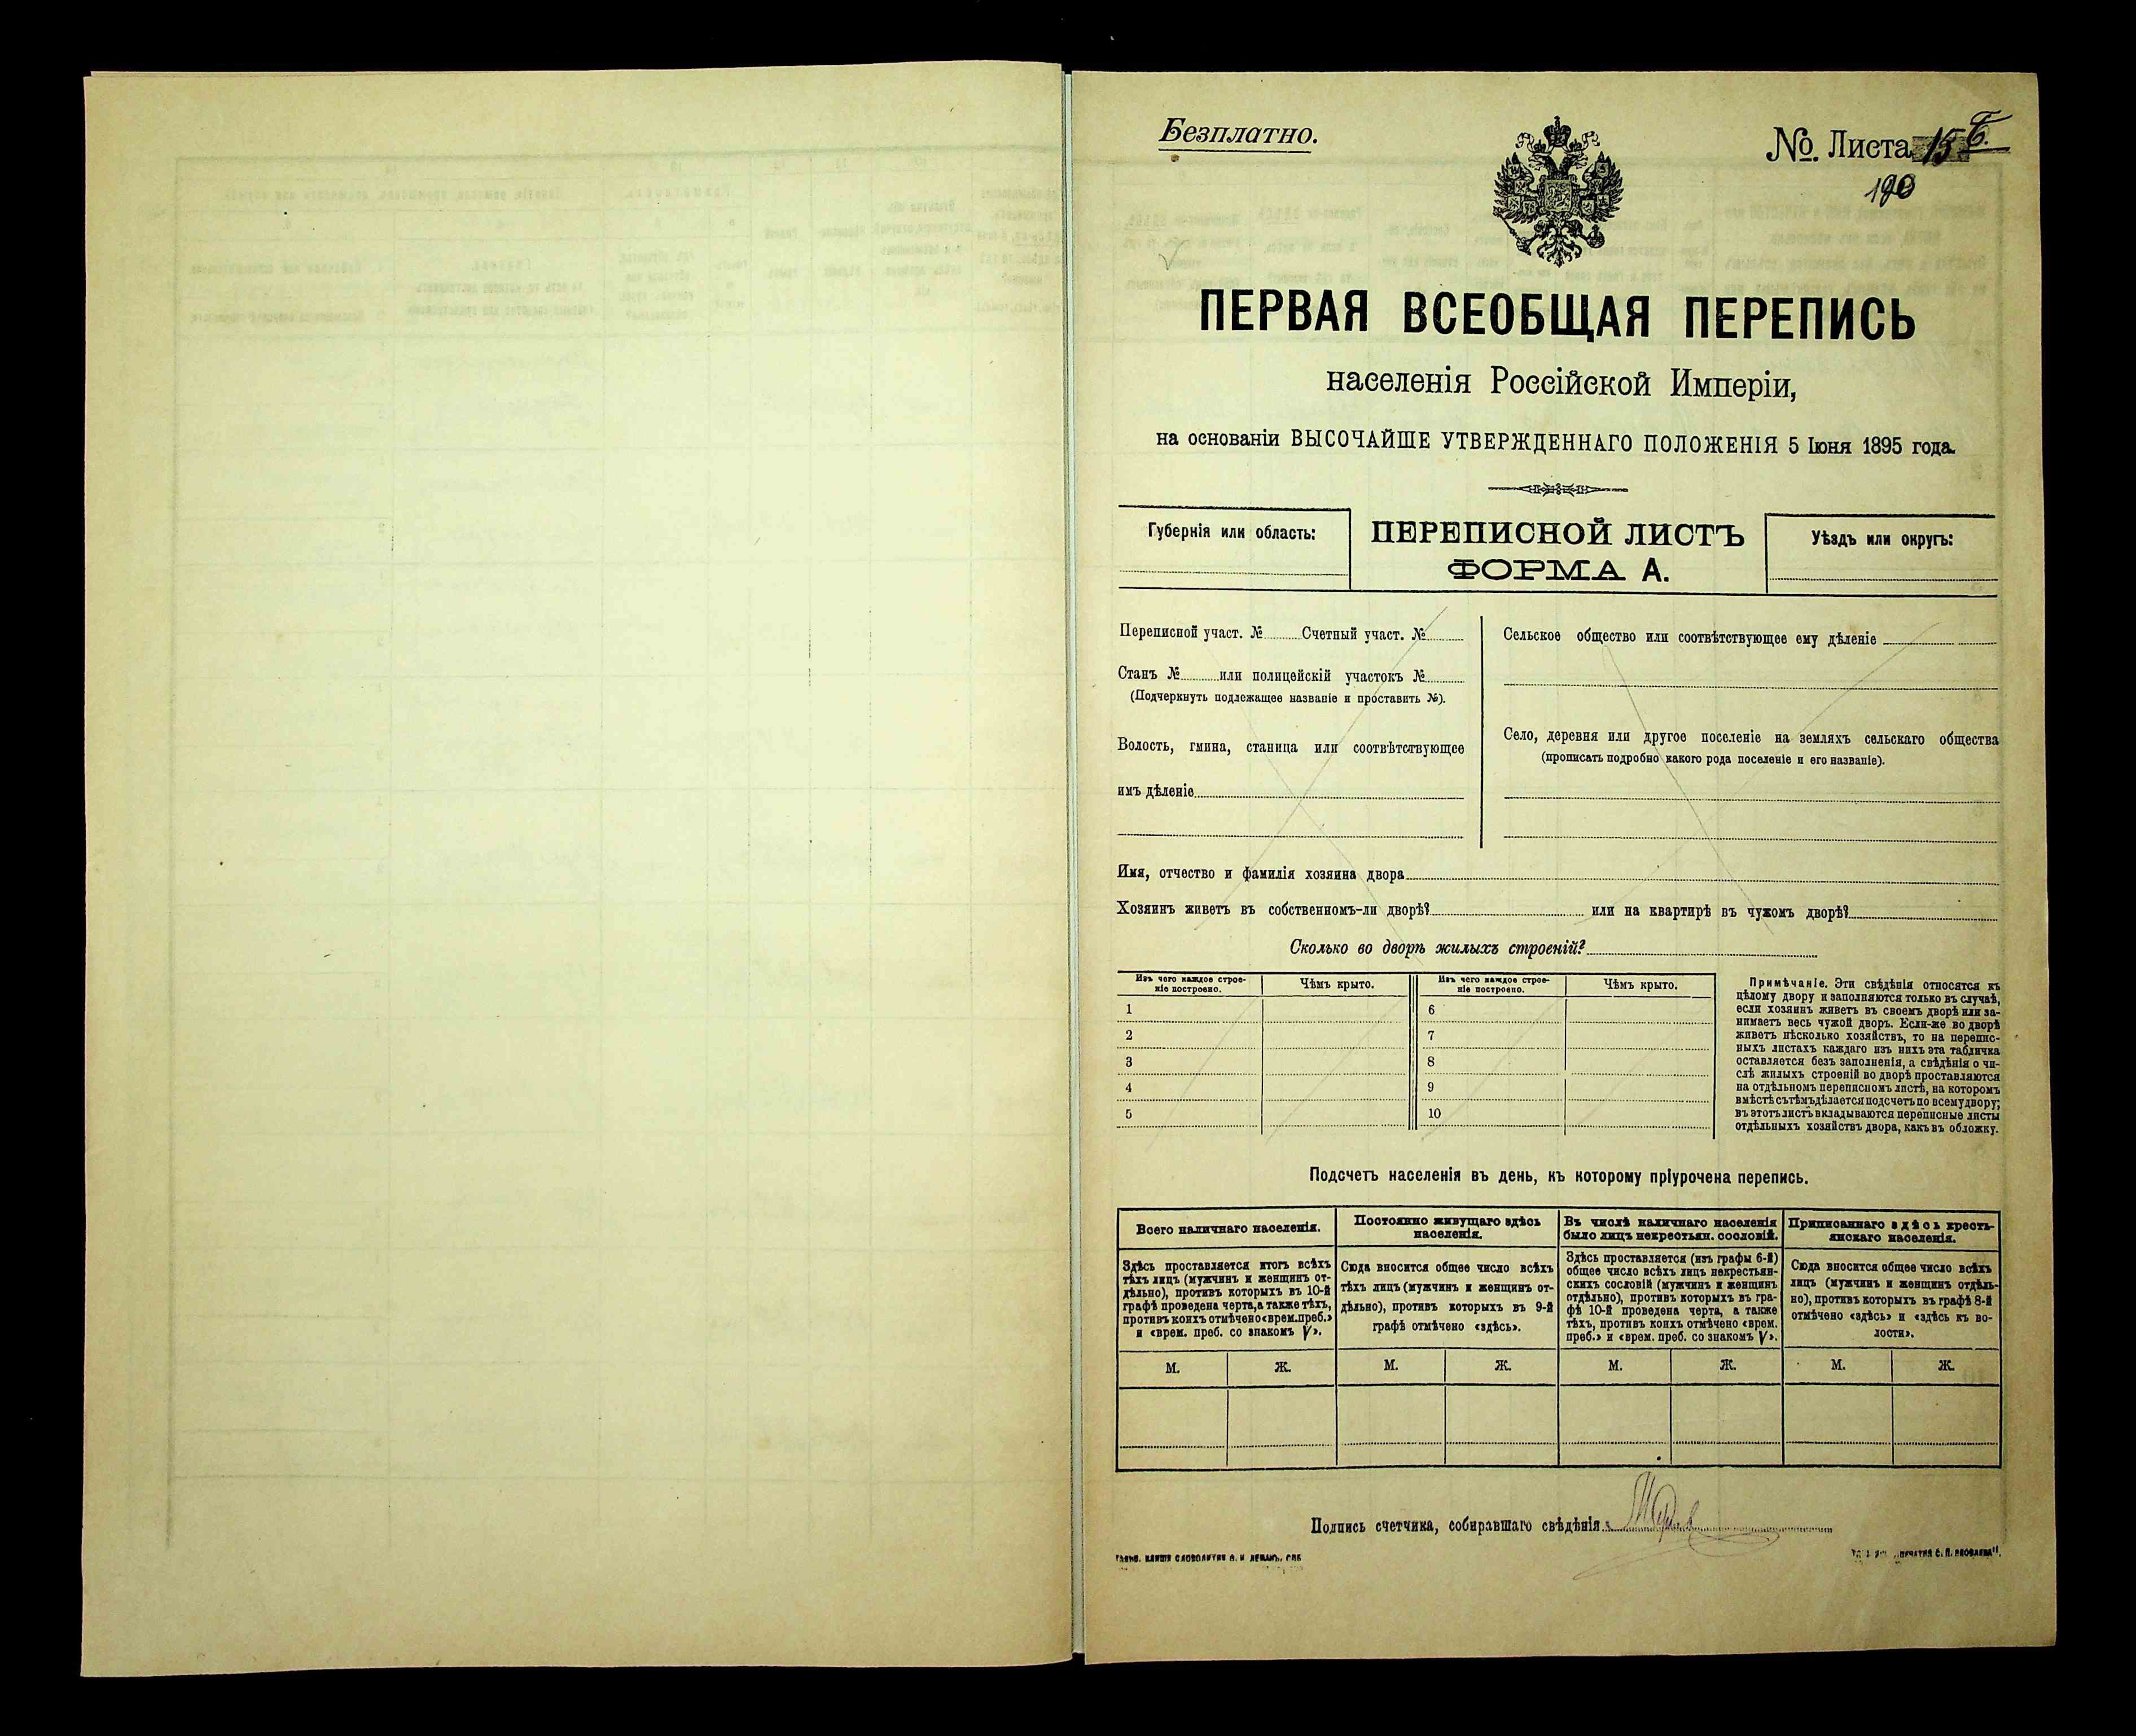 Безплатно.
№. Листа 15 Б.
190
ПЕРВАЯ ВСЕОБЩАЯ ПЕРЕПИСЬ
населенія Россійской Имперіи,
на основаніи ВЫСОЧАЙШЕ УТВЕРЖДЕННАГО ПОЛОЖЕНІЯ 5 Іюня 1895 года.
Губернія или область:
ПЕРЕПИСНОЙ ЛИСТЪ
ФОРМА А.
Уѣздъ или округъ:
Переписной участ. № Счетный участ. №
Станъ № или полицейскій участокъ №
(Подчеркнуть подлежащее названіе и проставить №).
Волость, гмина, станица или соотвѣтствующее
имъ дѣленіе
Сельское общество или соотвѣтствующее ему дѣленіе
Село, деревня или другое поселеніе на земляхъ сельскаго общества
(прописать подробно какого рода поселеніе и его названіе).
Имя, отчество и фамилія хозяина двора
Хозяинъ живетъ въ собственномъ-ли дворѣ? или на квартирѣ въ чужомъ дворѣ?
Сколько во дворѣ жилыхъ строеній?
Изъ чего каждое строе-
ніе построено.
Чѣмъ крыто.
Изъ чего каждое строе-
ніе построено.
Чѣмъ крыто.
1 6
2 7
3 8
4 9
5 10
Примѣчаніе. Эти свѣдѣнія относятся къ
цѣлому двору и заполняются только въ случаѣ,
если хозяинъ живетъ въ своемъ дворѣ или за-
нимаетъ весь чужой дворъ. Если-же во дворѣ
живетъ нѣсколько хозяйствъ, то на перепис-
ныхъ листахъ каждаго изъ нихъ эта табличка
оставляется безъ заполненія, а свѣдѣнія о чи-
слѣ жилыхъ строеній во дворѣ проставляются
на отдѣльномъ переписномъ листѣ, на которомъ
вмѣстѣ съ тѣмъ дѣлается подсчетъ по всему двору;
въ этотъ листъ вкладываются переписные листы
отдѣльныхъ хозяйствъ двора, какъ въ обложку.
Подсчетъ населенія въ день, къ которому пріурочена перепись.
Всего наличнаго населенія.
Здѣсь проставляется итогъ всѣхъ
тѣхъ лицъ (мужчинъ и женщинъ от-
дѣльно), противъ которыхъ въ 10-й
графѣ проведена черта, а также тѣхъ,
противъ коихъ отмѣчено «врем. преб.»
и «врем. преб. со знакомъ V».
М. Ж.
Постоянно живущаго здѣсь
населенія.
Сюда вносится общее число всѣхъ
тѣхъ лицъ (мужчинъ и женщинъ от-
дѣльно), противъ которыхъ въ 9-й
графѣ отмѣчено «здѣсь».
М. Ж.
Въ числѣ наличнаго населенія
было лицъ некрестьян. сословій.
Здѣсь проставляется (изъ графы 6-й)
общее число всѣхъ лицъ некрестьян-
скихъ сословій (мужчинъ и женщинъ
отдѣльно), противъ которыхъ въ гра-
фѣ 10-й проведена черта, а также
тѣхъ, противъ коихъ отмѣчено «врем.
преб.» и «врем. преб. со знакомъ V».
М. Ж.
Приписаннаго здѣсь кресть-
янскаго населенія.
Сюда вносится общее число всѣхъ
лицъ (мужчинъ и женщинъ отдѣль-
но), противъ которыхъ въ графѣ 8-й
отмѣчено «здѣсь» и «здѣсь къ во-
лости».
М. Ж.
Подпись счетчика, собиравшаго свѣдѣнія